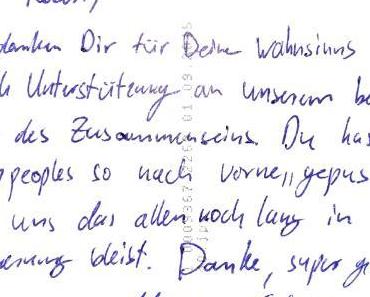 danken Dir für Deine Wahnsinns
h Unterstützung an unserem be
des Zusammenseins. Du has
peoples so nach vorne „gepus
uns das allen noch lang in
nerung bleist. Danke, super ge